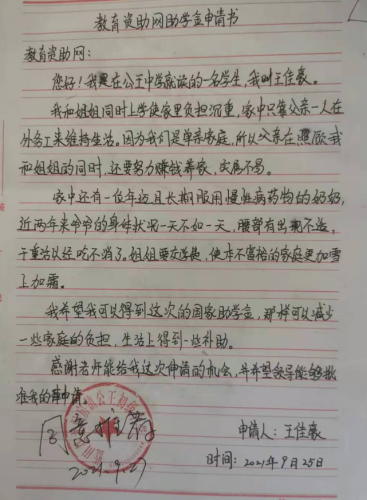 教育资助网助学金申请书
教育资助网：
您好！我是在公王中学就读的一名学生，我叫王佳豪。
我和姐姐同时上学使家里负担沉重，家中只靠父亲一人在
外务工来维持生活。因为我们是单亲家庭，所以父亲在照顾我
和姐姐的同时，还要努力赚钱养家，实属不易。
家中还有一位年迈且长期服用慢性病药物的奶奶，
近两年来爷爷的身体状况一天不如一天，腰背有出现不适，
干重活以经吃不消了。姐姐要交学费，使本不富裕的家庭更加雪
上加霜。
我希望我可以得到这次的国家助学金，那样可以减少
一些家庭的负担，生活上得到一些补助。
感谢老师能给我这次申请的机会，并希望领导能够批
准我的申请。
同意推荐
2021.9.27
申请人：王佳豪
时间：2021年9月25日